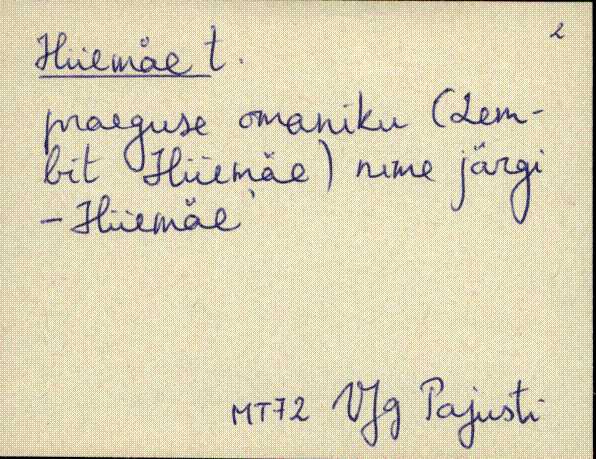 2
Hiiemäe t.
praeguse omaniku (Lem-
bit Hiiemäe) nime järgi
- Hiiemäe'
MT72 VJg Pajusti